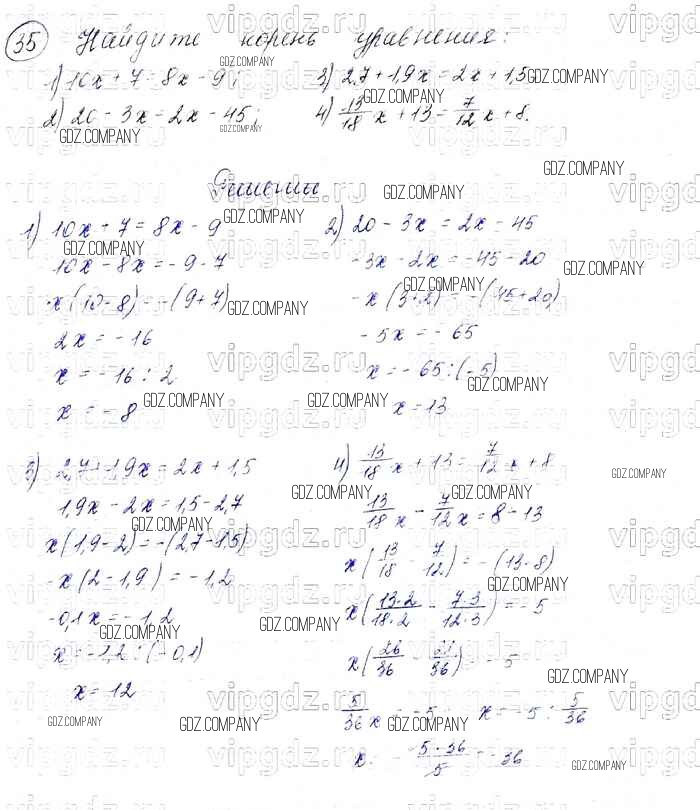 35 Найдите корень уравнения:
1) 10x + 7 = 8x - 9; 3) 2,7 + 1,9x = 2x + 1,5
2) 20 - 3x = 2x - 45; 4) 13/18 x + 13 = 7/12 x + 8.
Решении
1) 10x + 7 = 8x - 9
10x - 8x = -9 - 7
x(10-8) = -(9+7)
2x = -16
x = -16 : 2
x = -8
2) 20 - 3x = 2x - 45
-3x - 2x = -45 - 20
-x(3+2) = -(45+20)
-5x = -65
x = -65 : (-5)
x = 13
3) 2,7 + 1,9x = 2x + 1,5
1,9x - 2x = 1,5 - 2,7
x(1,9-2) = -(2,7-1,5)
-x(2-1,9) = -1,2
-0,1x = -1,2
x = -1,2 : (-0,1)
x = 12
4) 13/18 x + 13 = 7/12 x + 8
13/18 x - 7/12 x = 8 - 13
x(13/18 - 7/12) = -(13-8)
x(13·2/18·2 - 7·3/12·3) = -5
x(26/36 - 21/36) = -5
5/36 x = -5 x = -5 : 5/36
x = - 5·36/5 = -36
vipgdz.ru
GDZ.COMPANY